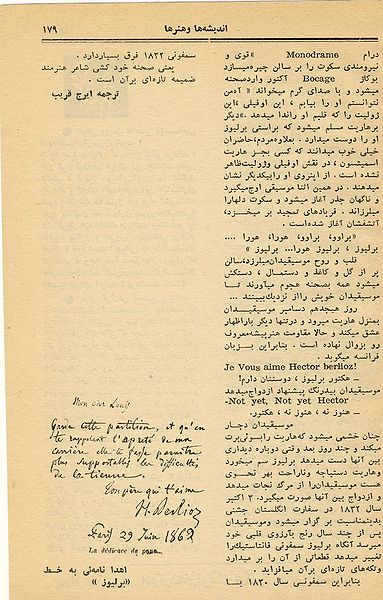 اندیشه‌ها وهنرها
۱۷۹
درام Monodrame «قوی و
نیرومندی سکوت را بر سالن چیره‌میسازد
بوکاژ Bocage آکتور واردصحنه
میشود و با صدای گرم میخواند « آه‌من
نتوانستم او را بیابم ، این اوفیلی ،این
ژولیت را که قلبم او راندا میدهد .»دیگر
برهاریت مسلم میشود که براستی برلیوز
او را دوست میدارد . بعلاوه‌مردم،حاضران
خیلی خوب میدانند که کسی بجز هاریت
اسمیتسون ، در نقش اوفیلی وژولیت‌ظاهر
نشده است . از اینروی او رابیکدیگر نشان
میدهند . در همین اثنا موسیقی اوج‌میگیرد
و ناگهان جذر آغاز میشود و سکوت دلهارا
میلرزاند . فریادهای تمجید بر میخیزد،
آتشفشان آغاز شده‌است .
«براوو، براوو، هورا، هورا ....
برلیوز ، برلیوز هورا... برلیوز »
قلب و روح موسیقیدان‌میلرزد،سالن
پر از گل و کاغذ و دستمال ، دستکش
میشود همه بصحنه هجوم میآورند تا
موسیقیدان خویش رااز نزدیک‌ببینند ...
روز هیجدهم دسامبر موسیقیدان
بمنزل هاریت میرود و درتنها دیگر باراظهار
عشق میکند و حالا مقاومت هنرپیشه‌معروف
رو بزوال نهاده است . بنابراین بزبان
فرانسه میگوید .
Je Vous aime Hector berlioz!
ــ هکتور برلیوز ، دوستتان دارم!
موسیقیدان بیدرنگ پیشنهاد ازدواج‌میدهد
-Not yet, Not yet Hector
ــ هنوز نه ، هنوز نه ، هکتور.
موسیقیدان دچار
چنان خشمی میشود که‌هاریت
میکند و چند روز بعد وقتی دوباره دیداری
بین آنها دست میدهد برلیوز سم میخورد
وهاریت دستپاچه وناراحت بهر نحوی
هست موسیقیدان‌را از مرگ نجات میدهد
و ازدواج بین آنها صورت میگیرد. ۳ اکتبر
سال ۱۸۳۲ در سفارت انگلستان جشنی
بدینمناسبت بر گذار میشود وموسیقیدان
پس از چند سال رنج بآرزوی قلبی خود
میرسد آنگاه برلیوز سمفونی فانتاستیک‌را
تغییر میدهد قطعاتی از آن را بر میدارد
وتکه‌های تازه‌ای برآن میافزاید .
بنابراین سمفونی سال ۱۸۳۰ با
سمفونی ۱۸۳۲ فرق بسیاردارد .
یعنی صحنه خود کشی شاعر هنرمند
ضمیمه تازه‌ای برآن است .
ترجمه ایرج قریب
Mon cher Louis
Garde cette partition, et qu'en
te rappelant l'âpreté de ma
carrière elle te fasse paraître
plus supportables les difficultés
de la tienne.
Ton père qui t'aime
H. Berlioz
Paris 29 Juin 1862
La dédicace du
اهدا نامه‌ئی به خط
« برلیوز »